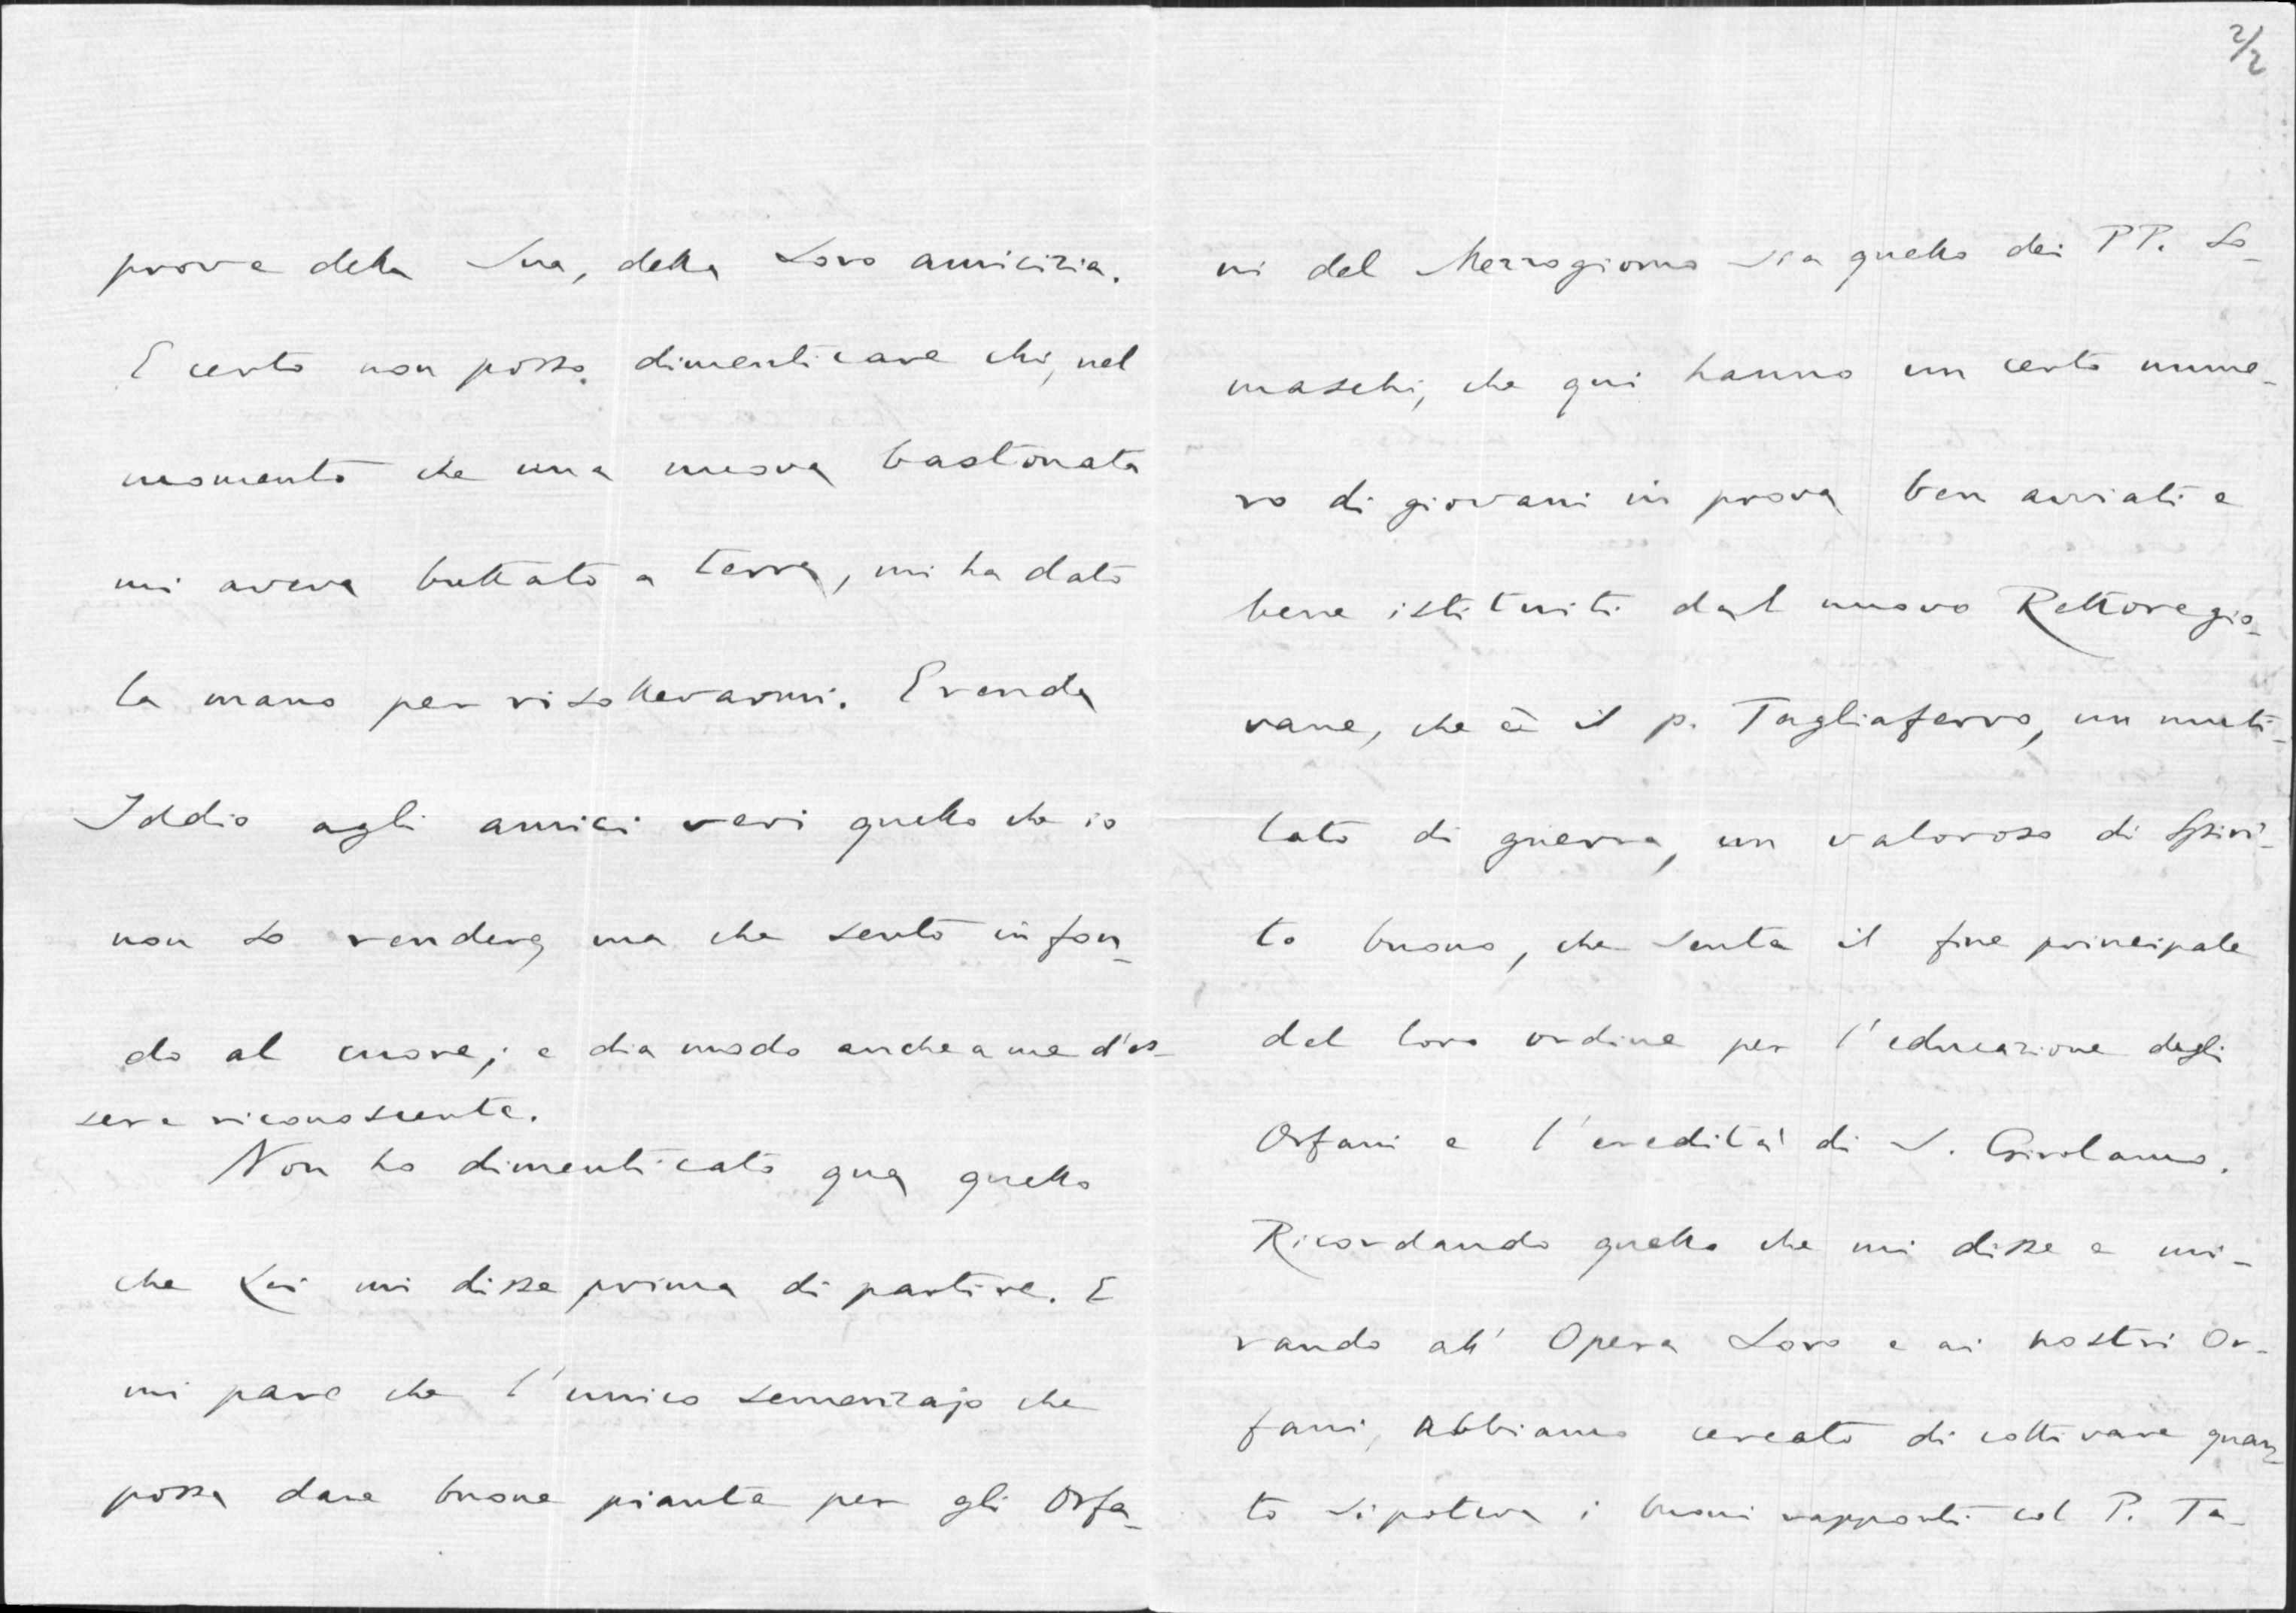 prove della Sua, della Loro amicizia.
E certo non posso dimenticare chi, nel
momento che una nuova bastonata
mi aveva buttato a terra, mi ha dato
la mano per risollevarmi. E renda
Iddio agli amici veri quello che io
non so rendere, ma che sento in fon-
do al cuore; e dia modo anche a me d'es-
sere riconoscente.
Non ho dimenticato qua quello
che Lei mi disse prima di partire. E
mi pare che l'unico semenzajo che
possa dare buone piante per gli Orfa-
2/2
ni del Mezzogiorno sia quello dei PP. So-
maschi, che qui hanno un certo nume-
ro di giovani in prova ben avviati e
bene istituiti dal nuovo Rettore gio-
vane, che è il p. Tagliaferro, un muti-
lato di guerra, un valoroso di spiri-
to buono, che sente il fine principale
del loro ordine per l'educazione degli
Orfani e l'eredità di S. Girolamo.
Ricordando quello che mi disse e mi-
rando all'Opera Loro e ai nostri Or-
fani, abbiamo cercato di coltivare quan-
to si poteva i buoni rapporti col P. Ta-